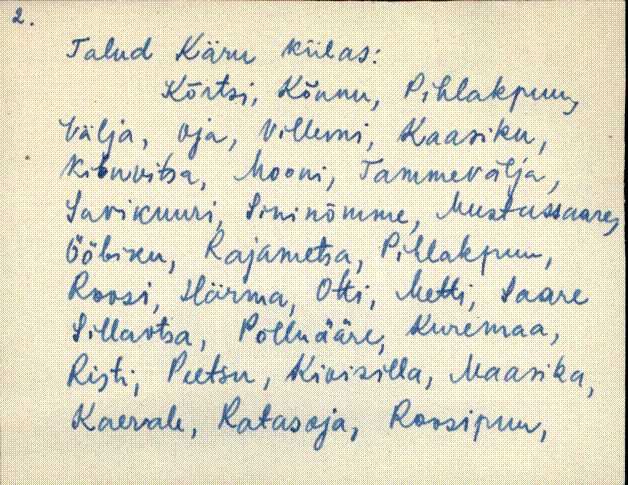 2.
Talud Käru külas:
Kõrtsi, Kõnnu, Pihlakpuu,
Välja, Oja, Villemi, Kaasiku,
Kibuvitsa, Mooni, Tammevälja,
Savikuuri, Sininõmme, Mustassaare,
Ööbiku, Rajametsa, Pihlakpuu,
Roosi, Härma, Otti, Metti, Saare
Sillaotsa, Põlluääre, Kuremaa,
Risti, Peetsu, Kivisilla, Maasika,
Kaevale, Ratasoja, Roosipuu,